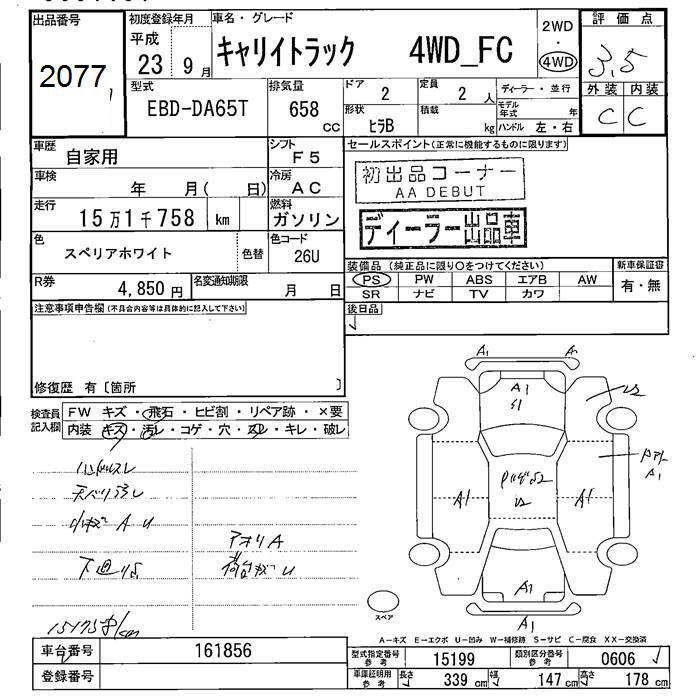 出品番号
2077
初度登録年月
平成
23 9月
車名・グレード
キャリイトラック 4WD_FC
2WD
・
4WD
評価点
3.5
外装 内装
C C
型式
EBD-DA65T
排気量
658
CC
ドア
2
定員
2 人
ディーラー・並行
モデル年式 年
形状
ヒラB
積載
kg
ハンドル 左・右
車歴
自家用
シフト
F5
セールスポイント(正常に機能するものに限ります)
初出品コーナー
AA DEBUT
ディーラー出品車
車検
年 月( 日)
冷房
AC
走行
15万1千758 km
燃料
ガソリン
色
スペリアホワイト
色替
色コード
26U
装備品(純正品に限り○をつけてください)
新車保証書
PS PW ABS エアB AW
有・無
SR ナビ TV カワ
R券
4,850円
名変通知期限
月 日
後日品
注意事項申告欄(不具合内容等は具体的に記入して下さい)
修復歴 有〔箇所 〕
検査員記入欄
FW キズ・飛石・ヒビ割・リペア跡・×要
内装 キズ・汚レ・コゲ・穴・スレ・キレ・破レ
A1
A1
A1
A1
A1
A1
A1
スペア
A-キズ E-エクボ U-凹み W-補修跡 S-サビ C-腐食 XX-交換済
車台番号
161856
型式指定番号
参考
15199
類別区分番号
参考
0606
登録番号
車庫証明用
参考
長さ 339 cm
幅 147 cm
高さ 178 cm